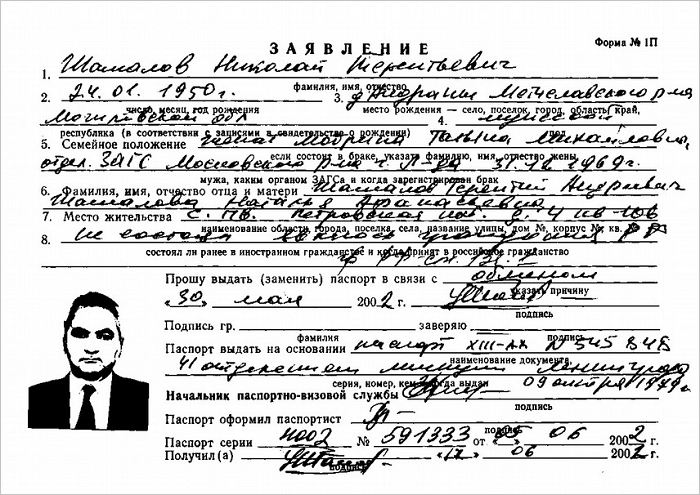 ЗАЯВЛЕНИЕ Форма № 1П
1. Шамалов Николай Терентьевич
фамилия, имя, отчество
2. 24.01.1950г. 3.
число, месяц, год рождения место рождения — село, поселок, город, область, край,
Могилевской обл 4. мужской
республика (в соответствии с записями в свидетельстве о рождении) пол
5. Семейное положение женат Татьяна Михайловна,
если состоит в браке, указать фамилию, имя, отчество жены,
отдел. ЗАГС Московского р-на г. Л-да 31.12.1969г.
мужа, каким органом ЗАГСа и когда зарегистрирован брак
6. Фамилия, имя, отчество отца и матери Шамалов Терентий
Шамалова Наталья
7. Место жительства С.Пб. Петровская наб. д. 4 кв-
наименование области, города, поселка, села, название улицы, дом №, корпус №, кв.
8. не состоял РФ
состоял ли ранее в иностранном гражданстве и когда принят в российское гражданство
Прошу выдать (заменить) паспорт в связи с обменом
указать причину
„30„ мая 2002 г.
подпись
Подпись гр. заверяю
фамилия подпись
Паспорт выдать на основании паспорт XIII-АК N 545848
наименование документа,
41 отделением милиции Ленинграда
серия, номер, кем и когда выдан 1979г
Начальник паспортно-визовой службы
подпись
Паспорт оформил паспортист
подпись
Паспорт серии 4002 № 591333 от „05„ 06 2002 г.
Получил (а) „17„ 06 2002 г.
подпись